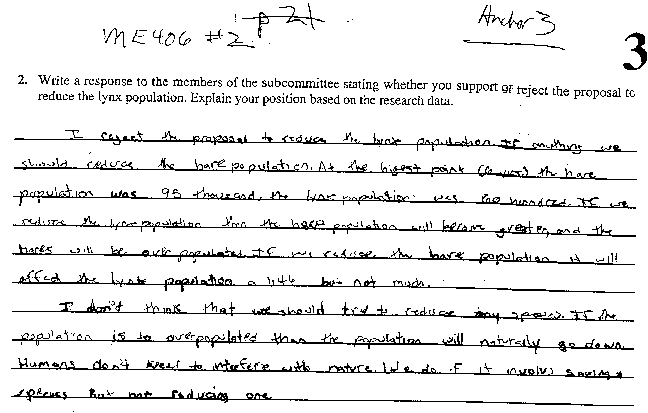 p 21
Anchor 3
ME406 #2
3
2. Write a response to the members of the subcommittee stating whether you support or reject the proposal to
reduce the lynx population. Explain your position based on the research data.
I reject the proposal to reduce the lynx population. If anything we
should reduce the hare population. At the higest point the hare
population was 95 thousand, the lynx population was hundred. If we
reduse the lynx population then the hare population will become greater, and the
hares will be over populated. If we reduse the hare population it will
affect the lynx population a but not much.
I don't think that we should try to reduce any species. If the
population is to overpopulated than the population will naturaly go down.
Humans don't need to interfere with nature. We do if it involvs saving a
species but not reducing one